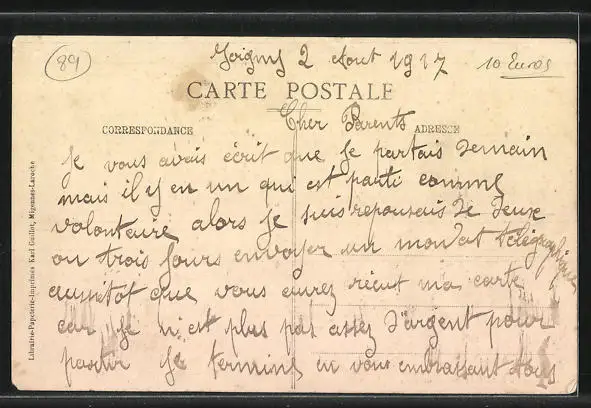 89
Joigny 2 Aout 1917
10 Euros
CARTE POSTALE
Cher Parents
CORRESPONDANCE
ADRESSE
Je vous avais écrit que Je partais Demain
mais il y en un qui est parti comme
volontaire alors Je suis repousais De Deux
ou trois Jours envoyer un mondat télégraphique
aussitot que vous aurez reçut ma carte
car Je n'est plus pas assez D'argent pour
partir Je termine en vous embrassant tous
Librairie-Papeterie-Imprimés Karl Guillot, Migennes-Laroche